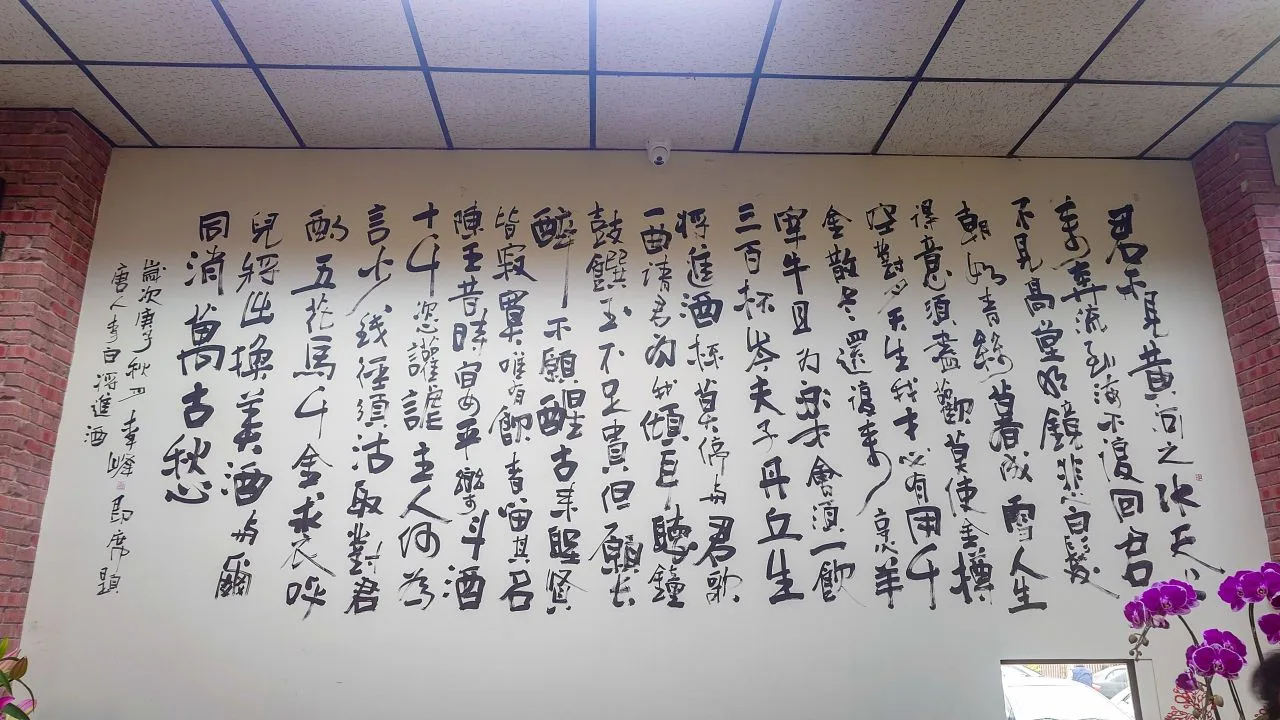 君不見黃河之水天上
來奔流到海不復回君
不見高堂明鏡悲白髮
朝如青絲暮成雪人生
得意須盡歡莫使金樽
空對月天生我才必有用千
金散盡還復來烹羊
宰牛且為樂會須一飲
三百杯岑夫子丹丘生
將進酒杯莫停與君歌
一曲請君為我傾耳聽鐘
鼓饌玉不足貴但願长
醉不願醒古來聖賢
皆寂寞唯有飲者留其名
陳王昔時宴平樂斗酒
十千恣讙謔主人何為
言少錢徑須沽取對君
酌五花馬千金裘呼
兒將出換美酒与爾
同消萬古愁
歲次庚子秋月李峰即席題
唐人李白將進酒